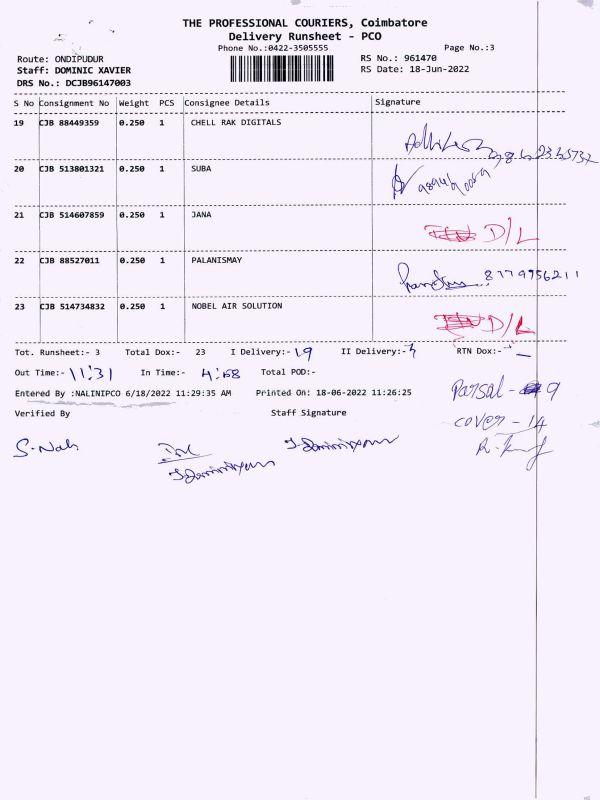 THE PROFESSIONAL COURIERS, Coimbatore
Delivery Runsheet - PCO
Phone No.:0422-3505555 Page No.:3
Route: ONDIPUDUR RS No.: 961470
Staff: DOMINIC XAVIER RS Date: 18-Jun-2022
DRS No.: DCJB96147003
S No Consignment No Weight PCS Consignee Details Signature
19 CJB 88449359 0.250 1 CHELL RAK DIGITALS
20 CJB 513801321 0.250 1 SUBA
21 CJB 514607859 0.250 1 JANA D/L
22 CJB 88527011 0.250 1 PALANISMAY 8779956211
23 CJB 514734832 0.250 1 NOBEL AIR SOLUTION D/L
Tot. Runsheet:- 3 Total Dox:- 23 I Delivery:- 19 II Delivery:- RTN Dox:-
Out Time:- 11:31 In Time:- Total POD:-
Parsal - 9
Entered By :NALINIPCO 6/18/2022 11:29:35 AM Printed On: 18-06-2022 11:26:25
Verified By Staff Signature
cover - 14